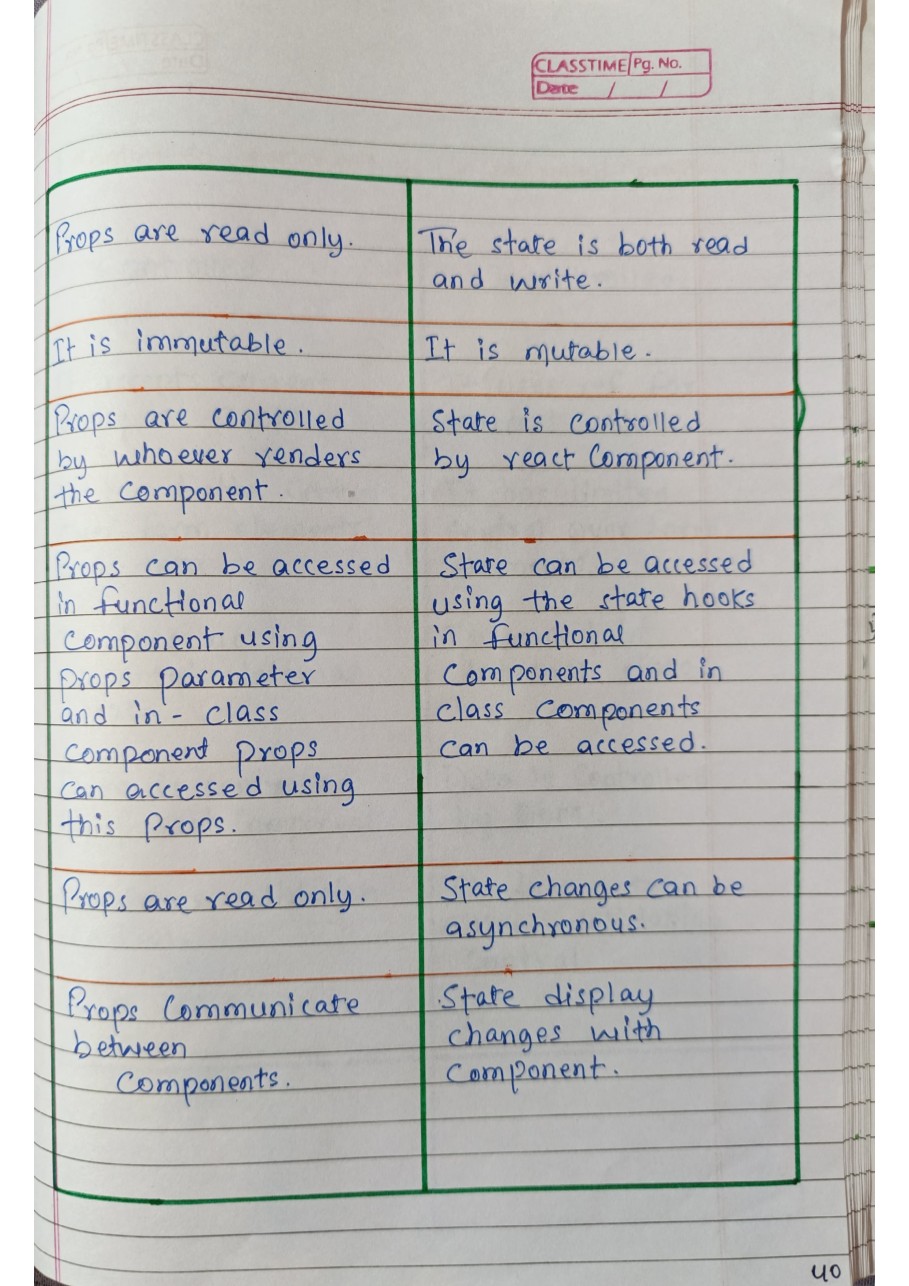 CLASSTIME Pg. No.
Date / /
Props are read only.
The state is both read
and write.
It is immutable.
It is mutable.
Props are controlled
by whoever renders
the component.
State is controlled
by react Component.
Props can be accessed
in functional
component using
props parameter
and in - class
component props
can accessed using
this props.
State can be accessed
using the state hooks
in functional
Components and in
class components
can be accessed.
Props are read only.
State changes can be
asynchronous.
Props Communicate
between
Components.
State display
changes with
Component.
40